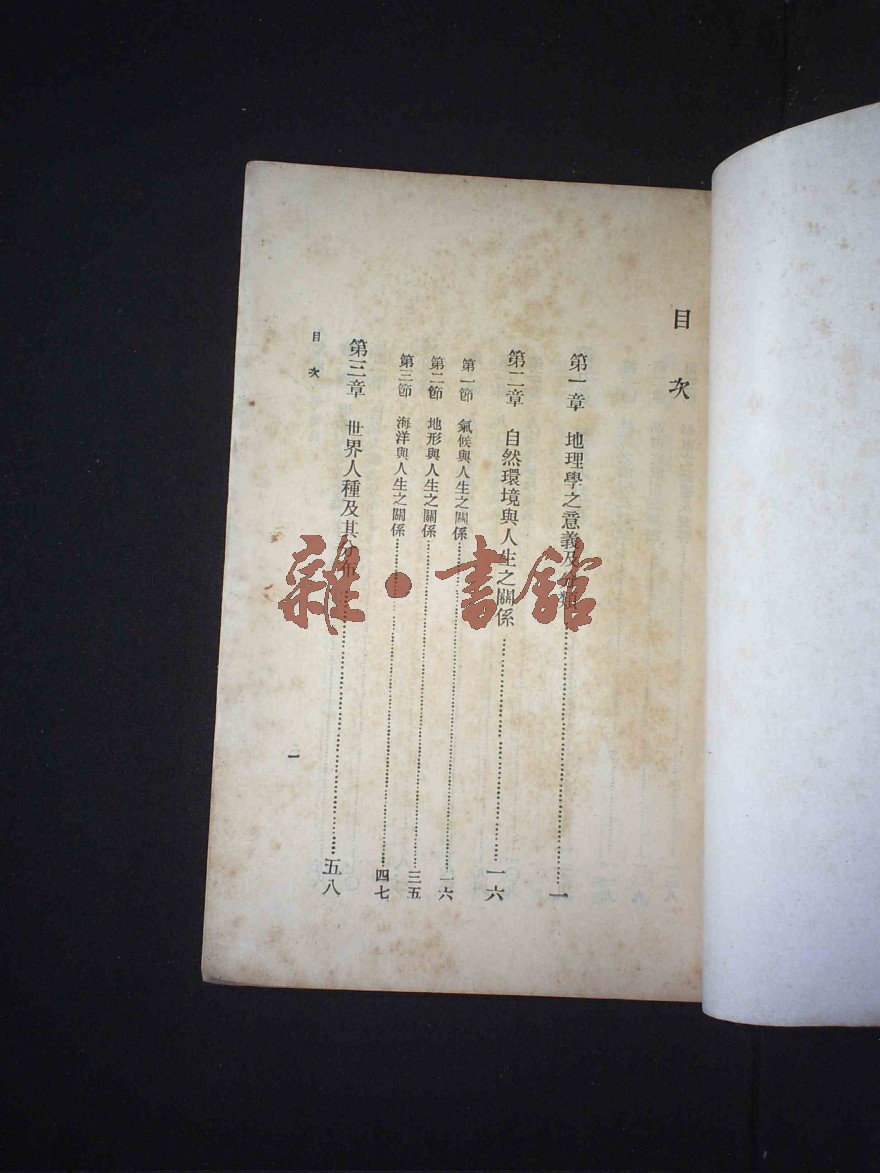 目次
第一章 地理學之意義及分類……一
第二章 自然環境與人生之關係……一六
第一節 氣候與人生之關係……一六
第二節 地形與人生之關係……三五
第三節 海洋與人生之關係……四七
第三章 世界人種及其分布……五八
目次
一
雜·書館